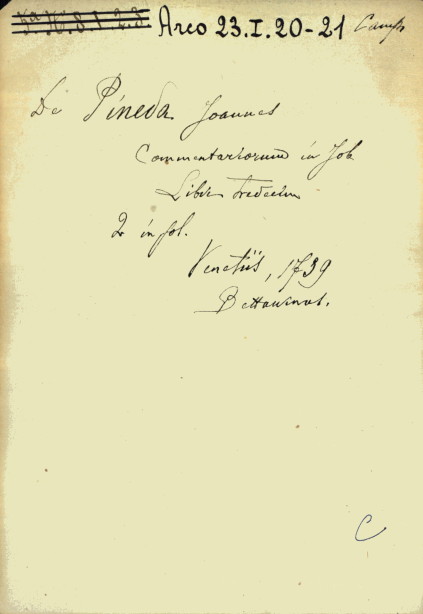 Arco 23.I.20-21
De Pineda Joannes
Commentariorum in Job
Libri tredecim
2 in fol.
Venetiis, 1739
C